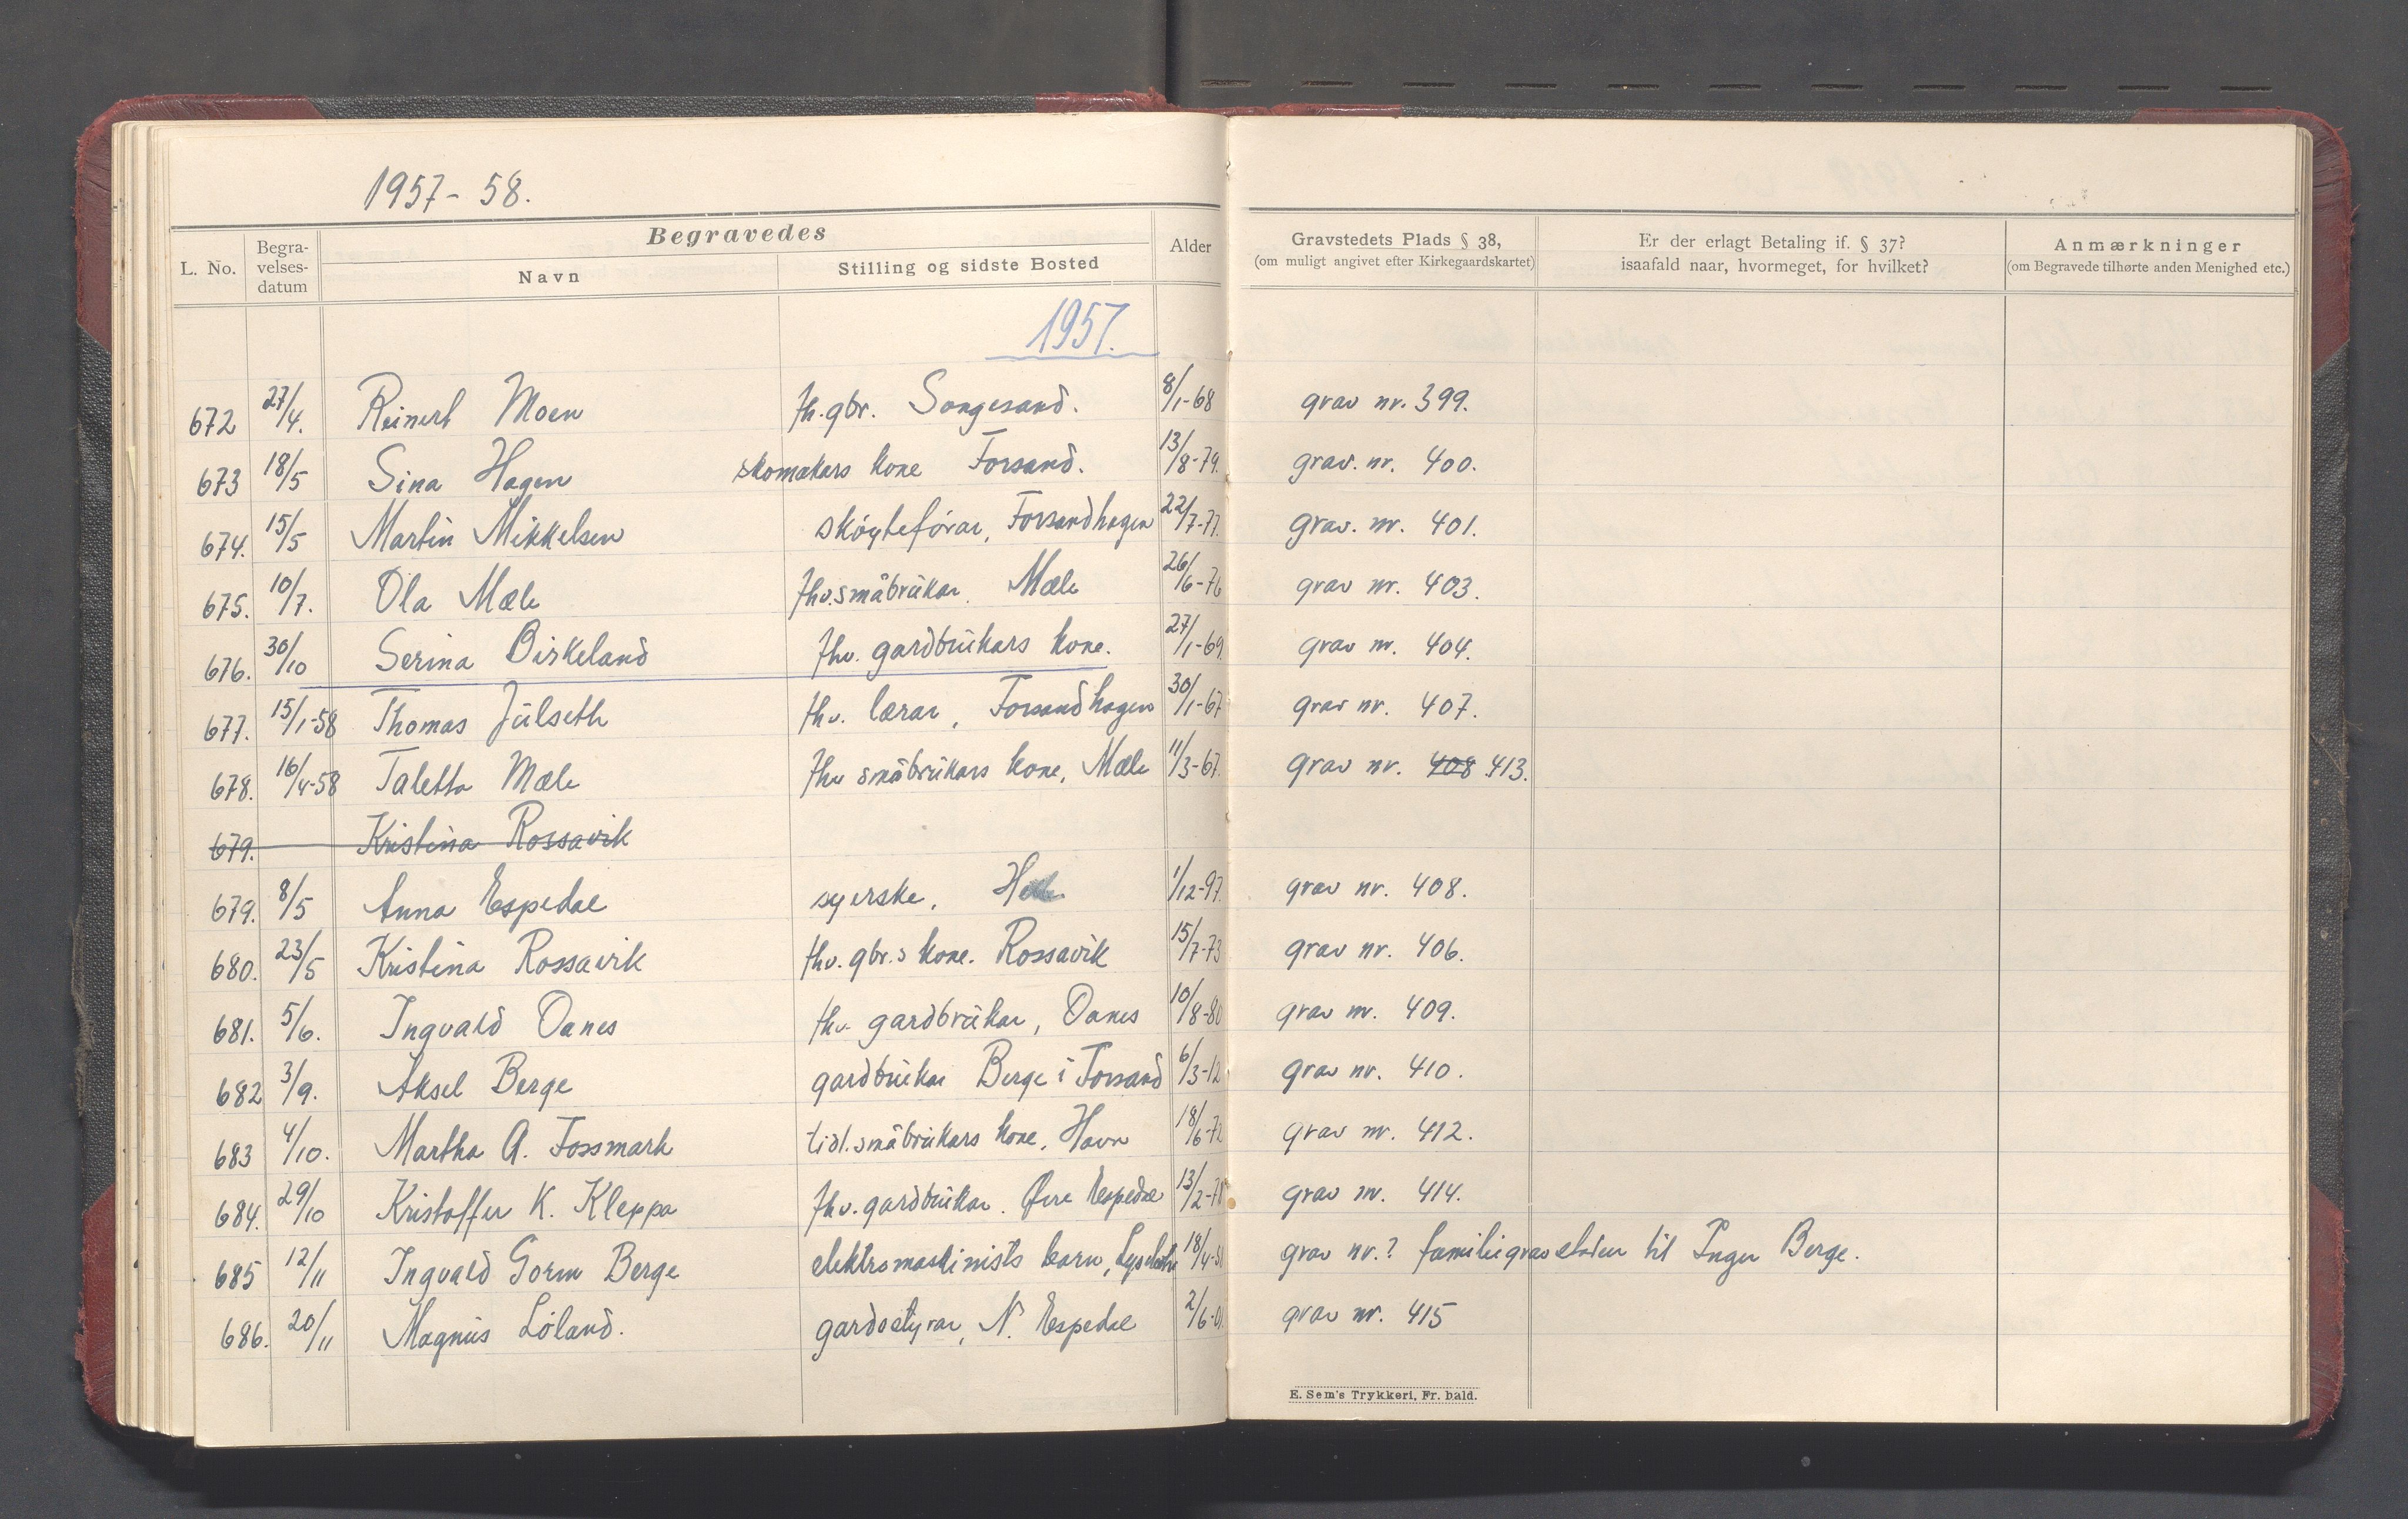 1957 - 58.
L. No. Begra- velses- datum Begravedes Alder Gravstedets Plads § 38, Er der erlagt Betaling if. § 37? Anmærkninger
Navn Stilling og sidste Bosted (om muligt angivet efter Kirkegaardskartet) isaafald naar, hvormeget, for hvilket? (om Begravede tilhørte anden Menighed etc.)
1957.
672 27/4. Reinert Moen fh. gbr. Songesand. 8/1-68 grav nr. 399.
673 18/5 Sina Hagen skomakars kone Forsand. 13/8-79. grav. nr. 400.
674. 15/5 Martin Mikkelsen skøyteførar, Forsandhagen 22/7-77. grav. nr. 401.
675. 10/7. Ola Mæle fhv. småbrukar. Mæle 26/6-76 grav nr. 403.
676. 30/10 Serina Birkeland fhv. gardbrukars kone. 27/1-69. grav nr. 404.
677. 15/1-58 Thomas Julseth fhv. lærar, Forsandhagen 30/1-67 grav nr. 407.
678. 16/4-58 Taletta Mæle fhv småbrukars kone, Mæle 11/3-67. grav nr. 408 413.
679. Kristina Rossavik
679. 8/5 Anna Espedal syerske, 1/12-97. grav nr. 408.
680. 23/5 Kristina Rossavik fhv. gbr.s kone. Rossavik 15/7-73 grav nr. 406.
681. 5/6. Ingvald Oanes fhv. gardbrukar, Oanes 10/8-80 grav nr. 409.
682 3/9. Aksel Berge gardbrukar Berge i Forsand 6/3-12 grav nr. 410.
683 4/10. Martha A. Fossmark tidl. småbrukars kone, Havn 18/6-72 grav nr. 412.
684. 29/10 Kristoffer K. Kleppa fhv. gardbrukar. Øvre Espedal 13/2-78 grav nr. 414.
685 12/11 Ingvald Gorm Berge elektromaskinists barn, 18/4-51 grav nr.? familiegravstaden til Inger Berge.
686. 20/11 Magnus Løland. gardsstyrar, N. Espedal 2/6-01. grav nr. 415
E. Sem's Trykkeri, Fr. hald.